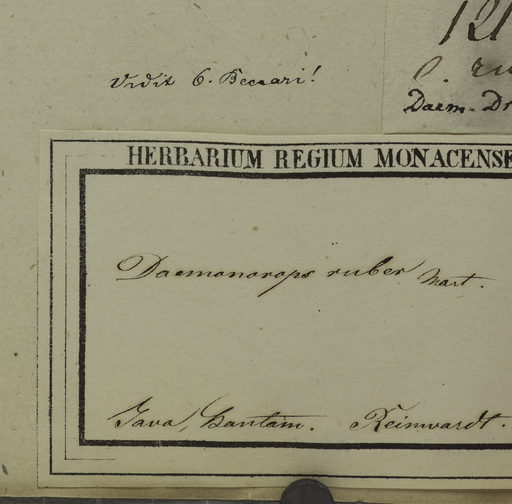 121
Vidit O. Beccari!
Daem. Dr
HERBARIUM REGIUM MONACENSE
Daemonorops ruber Mart.
Java, Bantam. Reinwardt.